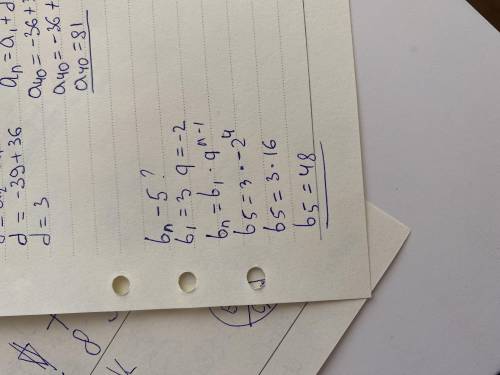 d = -39 + 36
d = 3
an = a1 + d
a40 = -36 + 3
a40 = -36 +
a40 = 81
bn - 5?
b1 = 3 q = -2
bn = b1 · q^n-1
b5 = 3 · -2^4
b5 = 3 · 16
b5 = 48